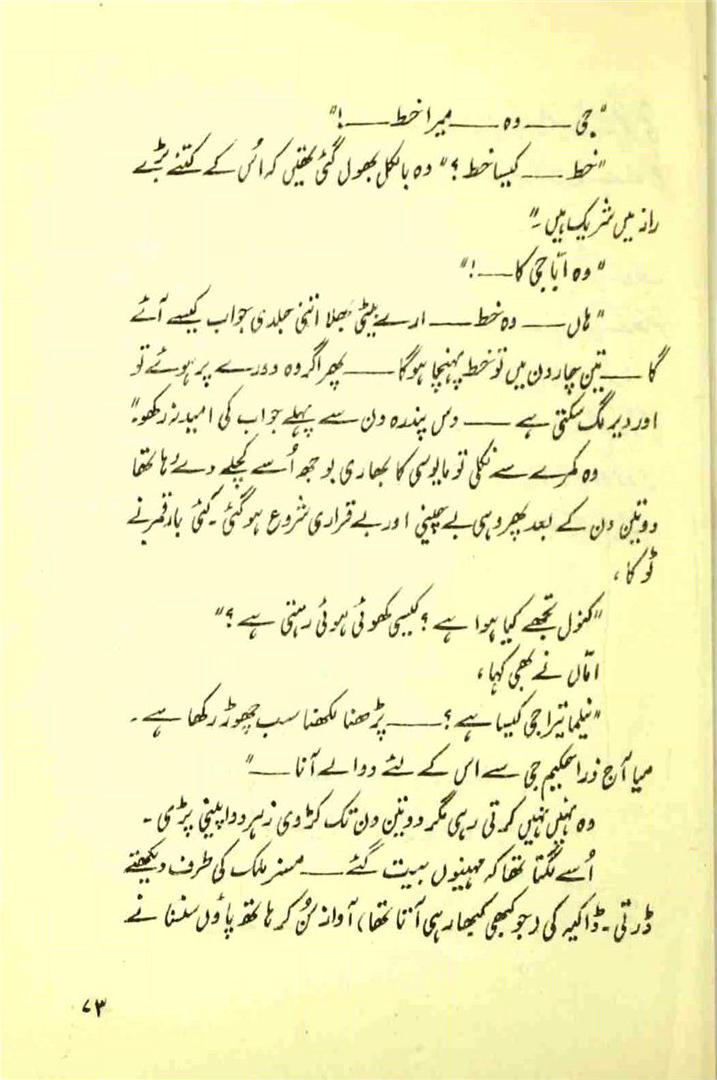 "جی ـــــ وہ ـــــ میرا خط ـــــ!"
"خط ـــــ کیسا خط؟" وہ بالکل بھول گئی تھیں کہ اُس کے کتنے بڑے
راز میں شریک ہیں۔"
"وہ ابّا جی کا ـــــ!"
"ہاں ـــــ وہ خط ـــــ ارے بیٹی بھلا اتنی جلدی جواب کیسے آئے
گا ـــــ تین چار دن میں تو خط پہنچا ہوگا ـــــ پھر اگر وہ دورے پر ہوئے تو
اور دیر لگ سکتی ہے ـــــ دس پندرہ دن سے پہلے جواب کی امید نہ رکھو۔"
وہ کمرے سے نکلی تو مایوسی کا بھاری بوجھ اُسے کچلے دے رہا تھا
دو تین دن کے بعد پھر وہی بے چینی اور بے قراری شروع ہو گئی۔ کئی بار قمر نے
ٹوکا،
"کنول تجھے کیا ہوا ہے؟ کیسی کھوئی ہوئی رہتی ہے؟"
امّاں نے بھی کہا،
"نیلما تیرا جی کیسا ہے؟ ـــــ پڑھنا لکھنا سب چھوڑ رکھا ہے۔
میا آج ذرا حکیم جی سے اس کے لئے دوا لے آنا ـــــ"
وہ نہیں نہیں کرتی رہی مگر دو تین دن تک کڑوی زہر دوا پینی پڑی۔
اُسے لگتا تھا کہ مہینوں بیت گئے ـــــ مسز ملک کی طرف دیکھتے
ڈرتی۔ ڈاکیہ کی (جو کبھی کبھار ہی آتا تھا) آواز سُن کر ہاتھ پاؤں سنسنانے
۷۳